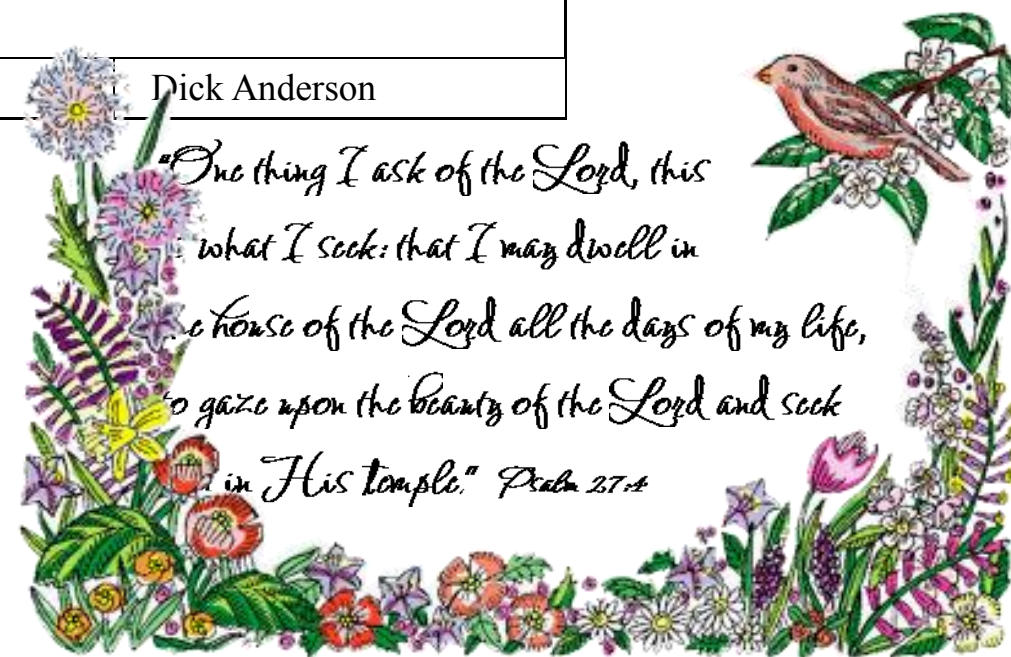 Dick Anderson
"One thing I ask of the Lord, this
what I seek: that I may dwell in
house of the Lord all the days of my life,
to gaze upon the beauty of the Lord and seek
in His temple." Psalm 27:4